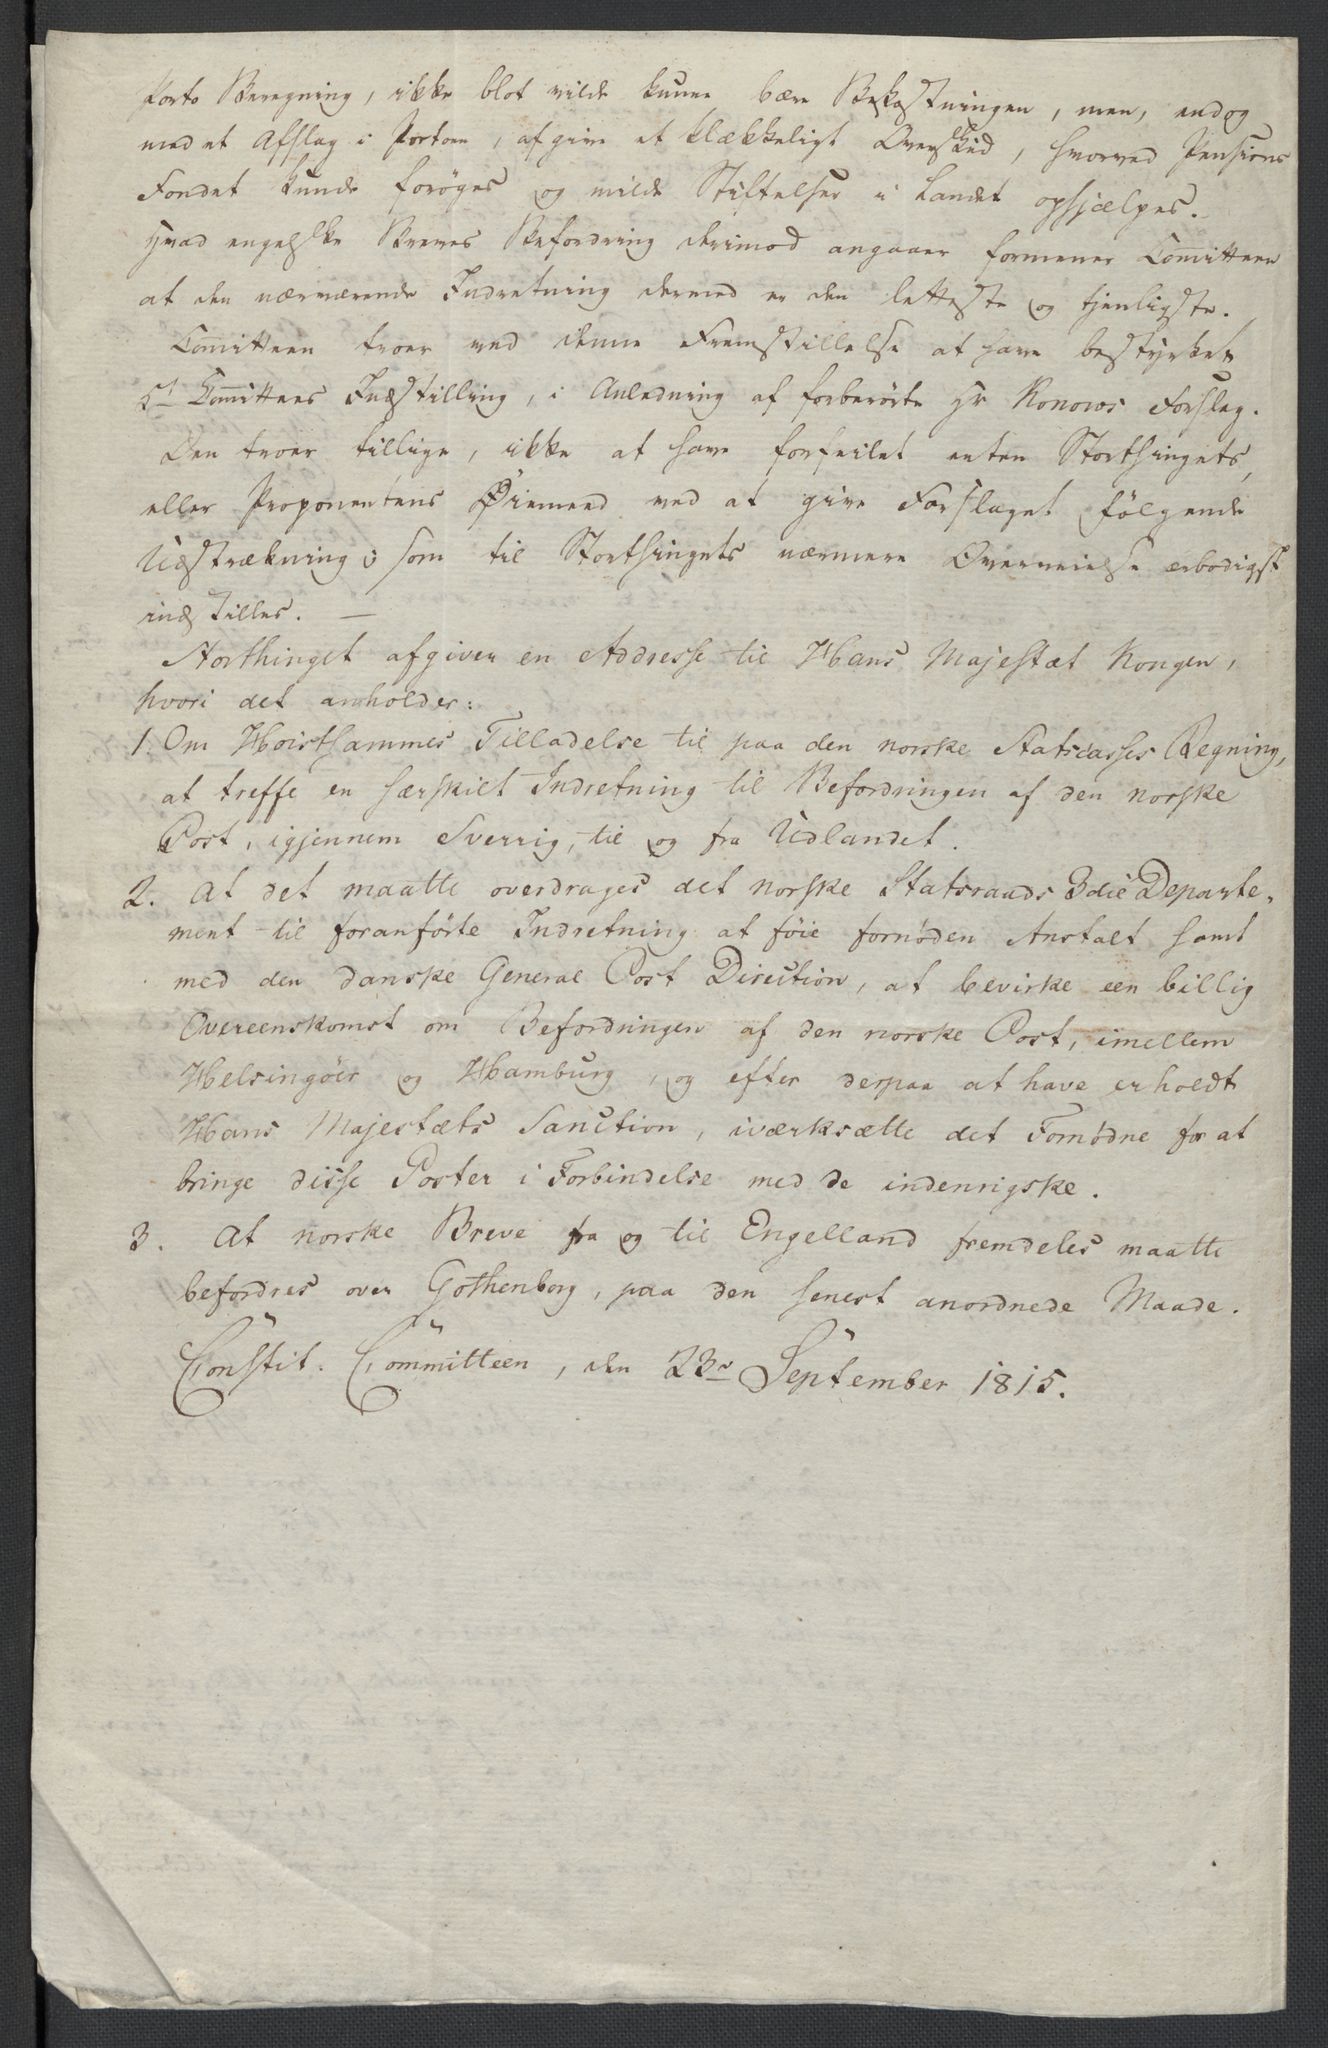 Porto Beregning, ikke blot vilde kunne bære Bekostningen, men, endog
med et Afslag i Portoen, afgive et klækkeligt Overskud, hvorved Pensions
Fondet kunde forøges og milde Stiftelser i Landet ophjælpes.
Hvad engelske Breves Befordring derimod angaaer formener Committeen
at den nærværende Indretning dermed er den letteste og tjenligste.
Committeen troer ved denne Fremstillelse at have bestyrket
Committees Indstilling, i Anledning af forberörte Hr Konows Forslag.
Den troer tillige, ikke at have forfeilet enten Storthingets,
eller Proponentens Øiemeed ved at give Forslaget følgende
Udstrækning; som til Storthingets nærmere Overveielse ærbødigst
indstilles. —
Storthinget afgiver en Addresse til Hans Majestæt Kongen,
hvori det anholder:
1. Om Høistsammes Tilladelse til paa den norske Statscasses Regning,
at treffe en særskilt Indretning til Befordringen af den norske
Post, igjennem Sverrig, til og fra Udlandet.
2. At det maatte overdrages det norske Statsraads 3die Departe-
ment til foranförte Indretning at föie fornöden Anstalt samt
med den danske General Post Direction, at bevirke een billig
Overeenskomst om Befordringen af den norske Post, imellem
Helsingöer og Hamburg, og efter derpaa at have erholdt
Hans Majestæts Sanction, iværksætte det Fornødne for at
bringe disse Poster i Forbindelse med de indenrigske.
3. At norske Breve fra og til Engelland fremdeles maatte
befordres over Gothenborg, paa den senest anordnede Maade.
Constit. Committeen, den 23de September 1815.